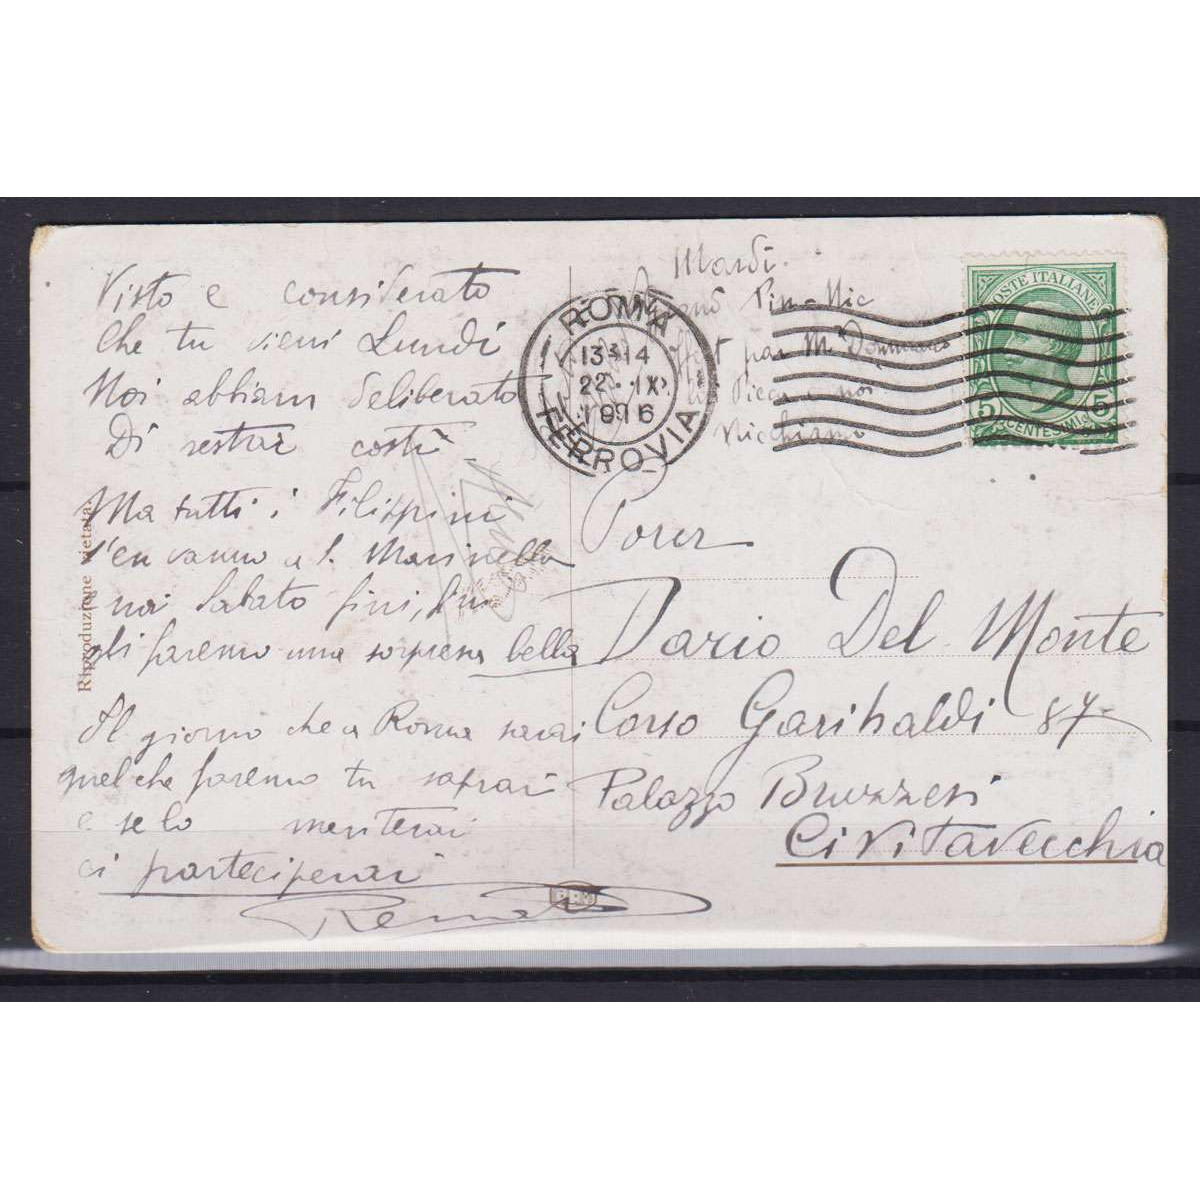 Visto e considerato
Che tu vieni Lundi
Noi abbiam deliberato
Di restar costi
Ma tutti i Filippini
s'en vanno a S. Marinella
noi Sabato
gli faremo una sorpresa bella
Il giorno che a Roma sarai
quel che faremo tu saprai
e se lo meriterai
ci parteciperai
Riproduzione vietata.
ROMA
FERROVIA
13-14
22. IX
Mardi.
Pin-Nic
par M.
POSTE ITALIANE
5 CENTESIMI 5
Dario Del Monte
Corso Garibaldi 87
Palazzo Bruzzesi
Civitavecchia